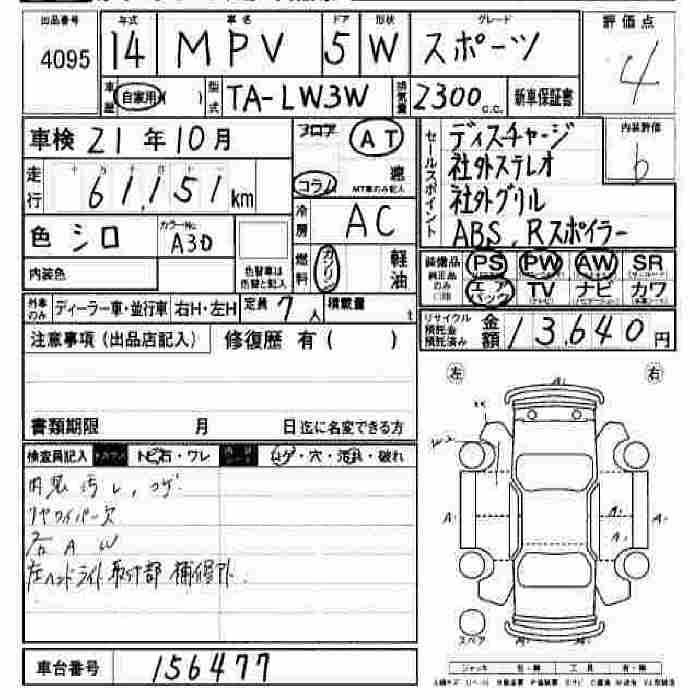 出品番号 年式 車名 ドア 形状 グレード 評価点
4095 14 MPV 5 W スポーツ 4
車歴 自家用 ( ) 型式 TA-LW3W 排気量 2300 c.c. 新車保証書
車検 21年10月 フロア AT セールスポイント ディスチャージ 内装評価
コラム 速 MT車のみ記入 社外ステレオ b
走行 61,151 km 社外グリル
冷房 AC ABS、Rスポイラー
色 シロ カラーNo. A3D
内装色 色替車は色替と記入 燃料 ガソリン 軽油
装備品 純正品のみ○印 PS PW AW SR
エアバック TV ナビ カワ
外車のみ ディーラー車・並行車 右H・左H 定員 7人 積載量 t
リサイクル預託金預託済み 金額 13,640円
注意事項(出品店記入) 修復歴 有( )
左 右
書類期限 月 日迄に名変できる方
検査員記入 トビ石・ワレ コゲ・穴・汚れ・破れ
内装汚レ、コゲ
リヤワイパー欠
左ヘッドライト取付部補修跡
W2
A1 A1 A1 A1
スペア
車台番号 156477
ジャッキ 有・無 工具 有・無